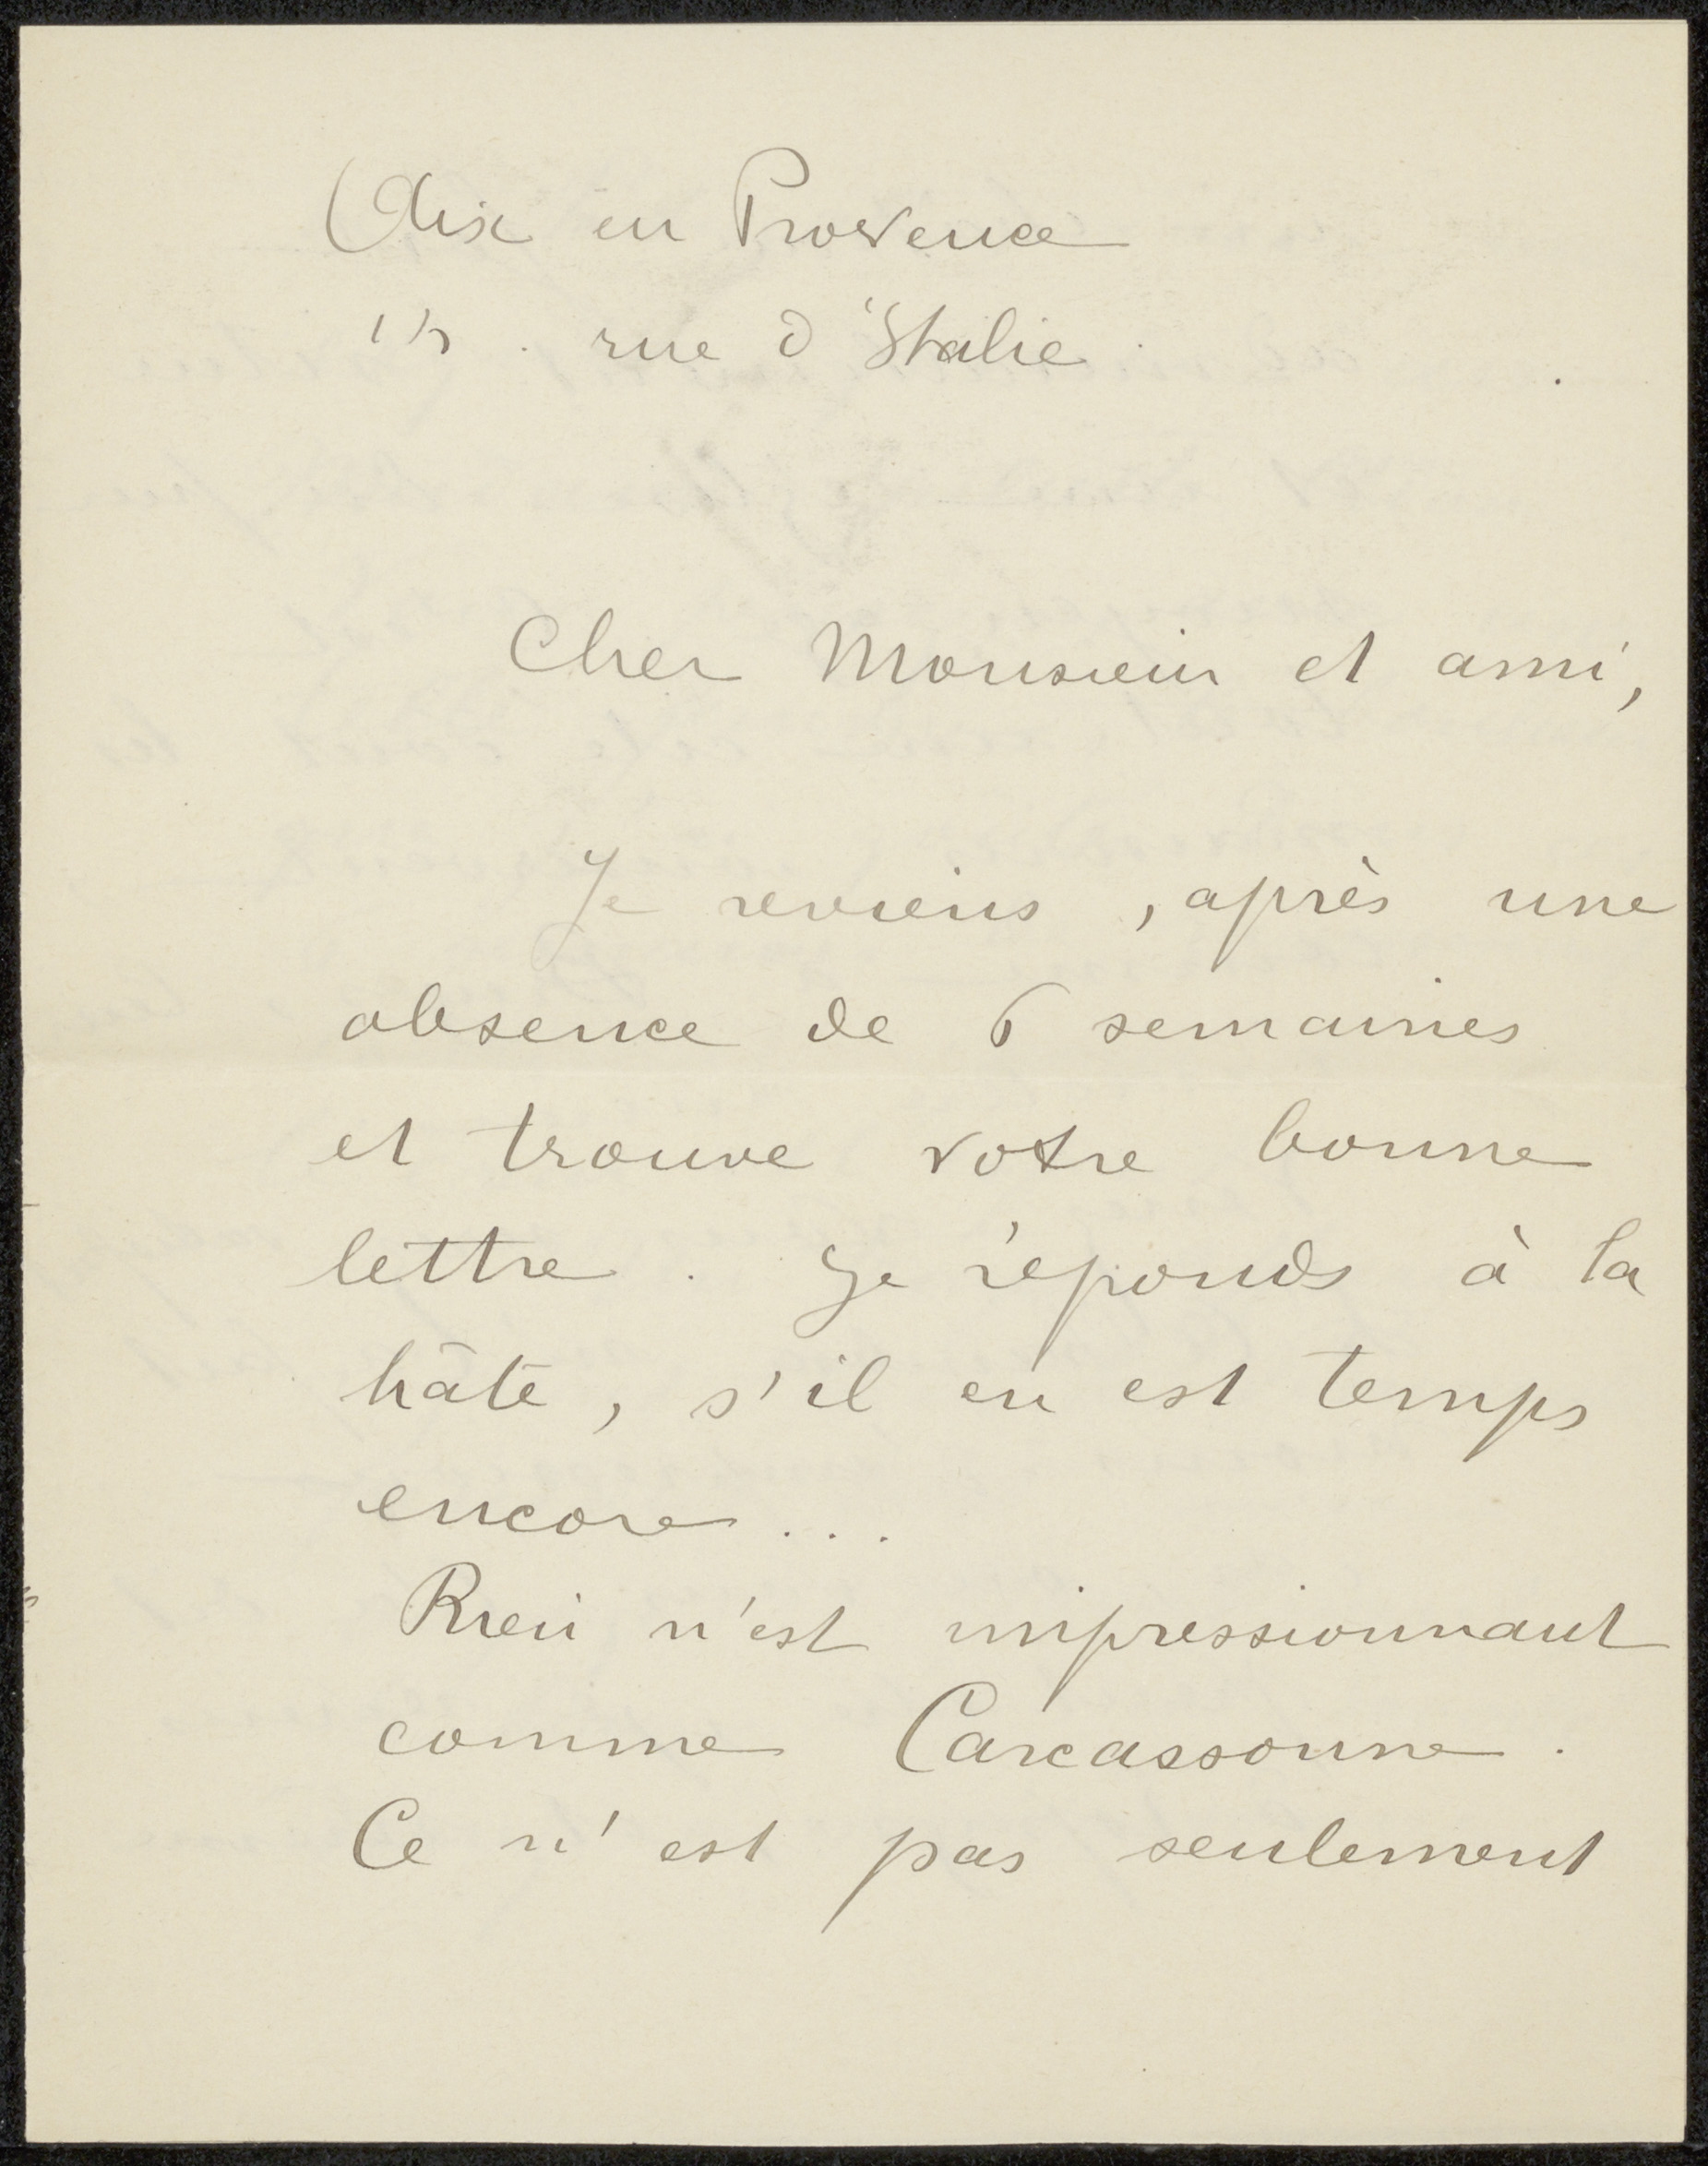 Aix en Provence
15. rue d'Italie.
Cher Monsieur et ami,
Je reviens, après une
absence de 6 semaines
et trouve votre bonne
lettre. Je réponds à la
hâte, s'il en est temps
encore...
Rien n'est impressionnant
comme Carcassonne.
Ce n'est pas seulement